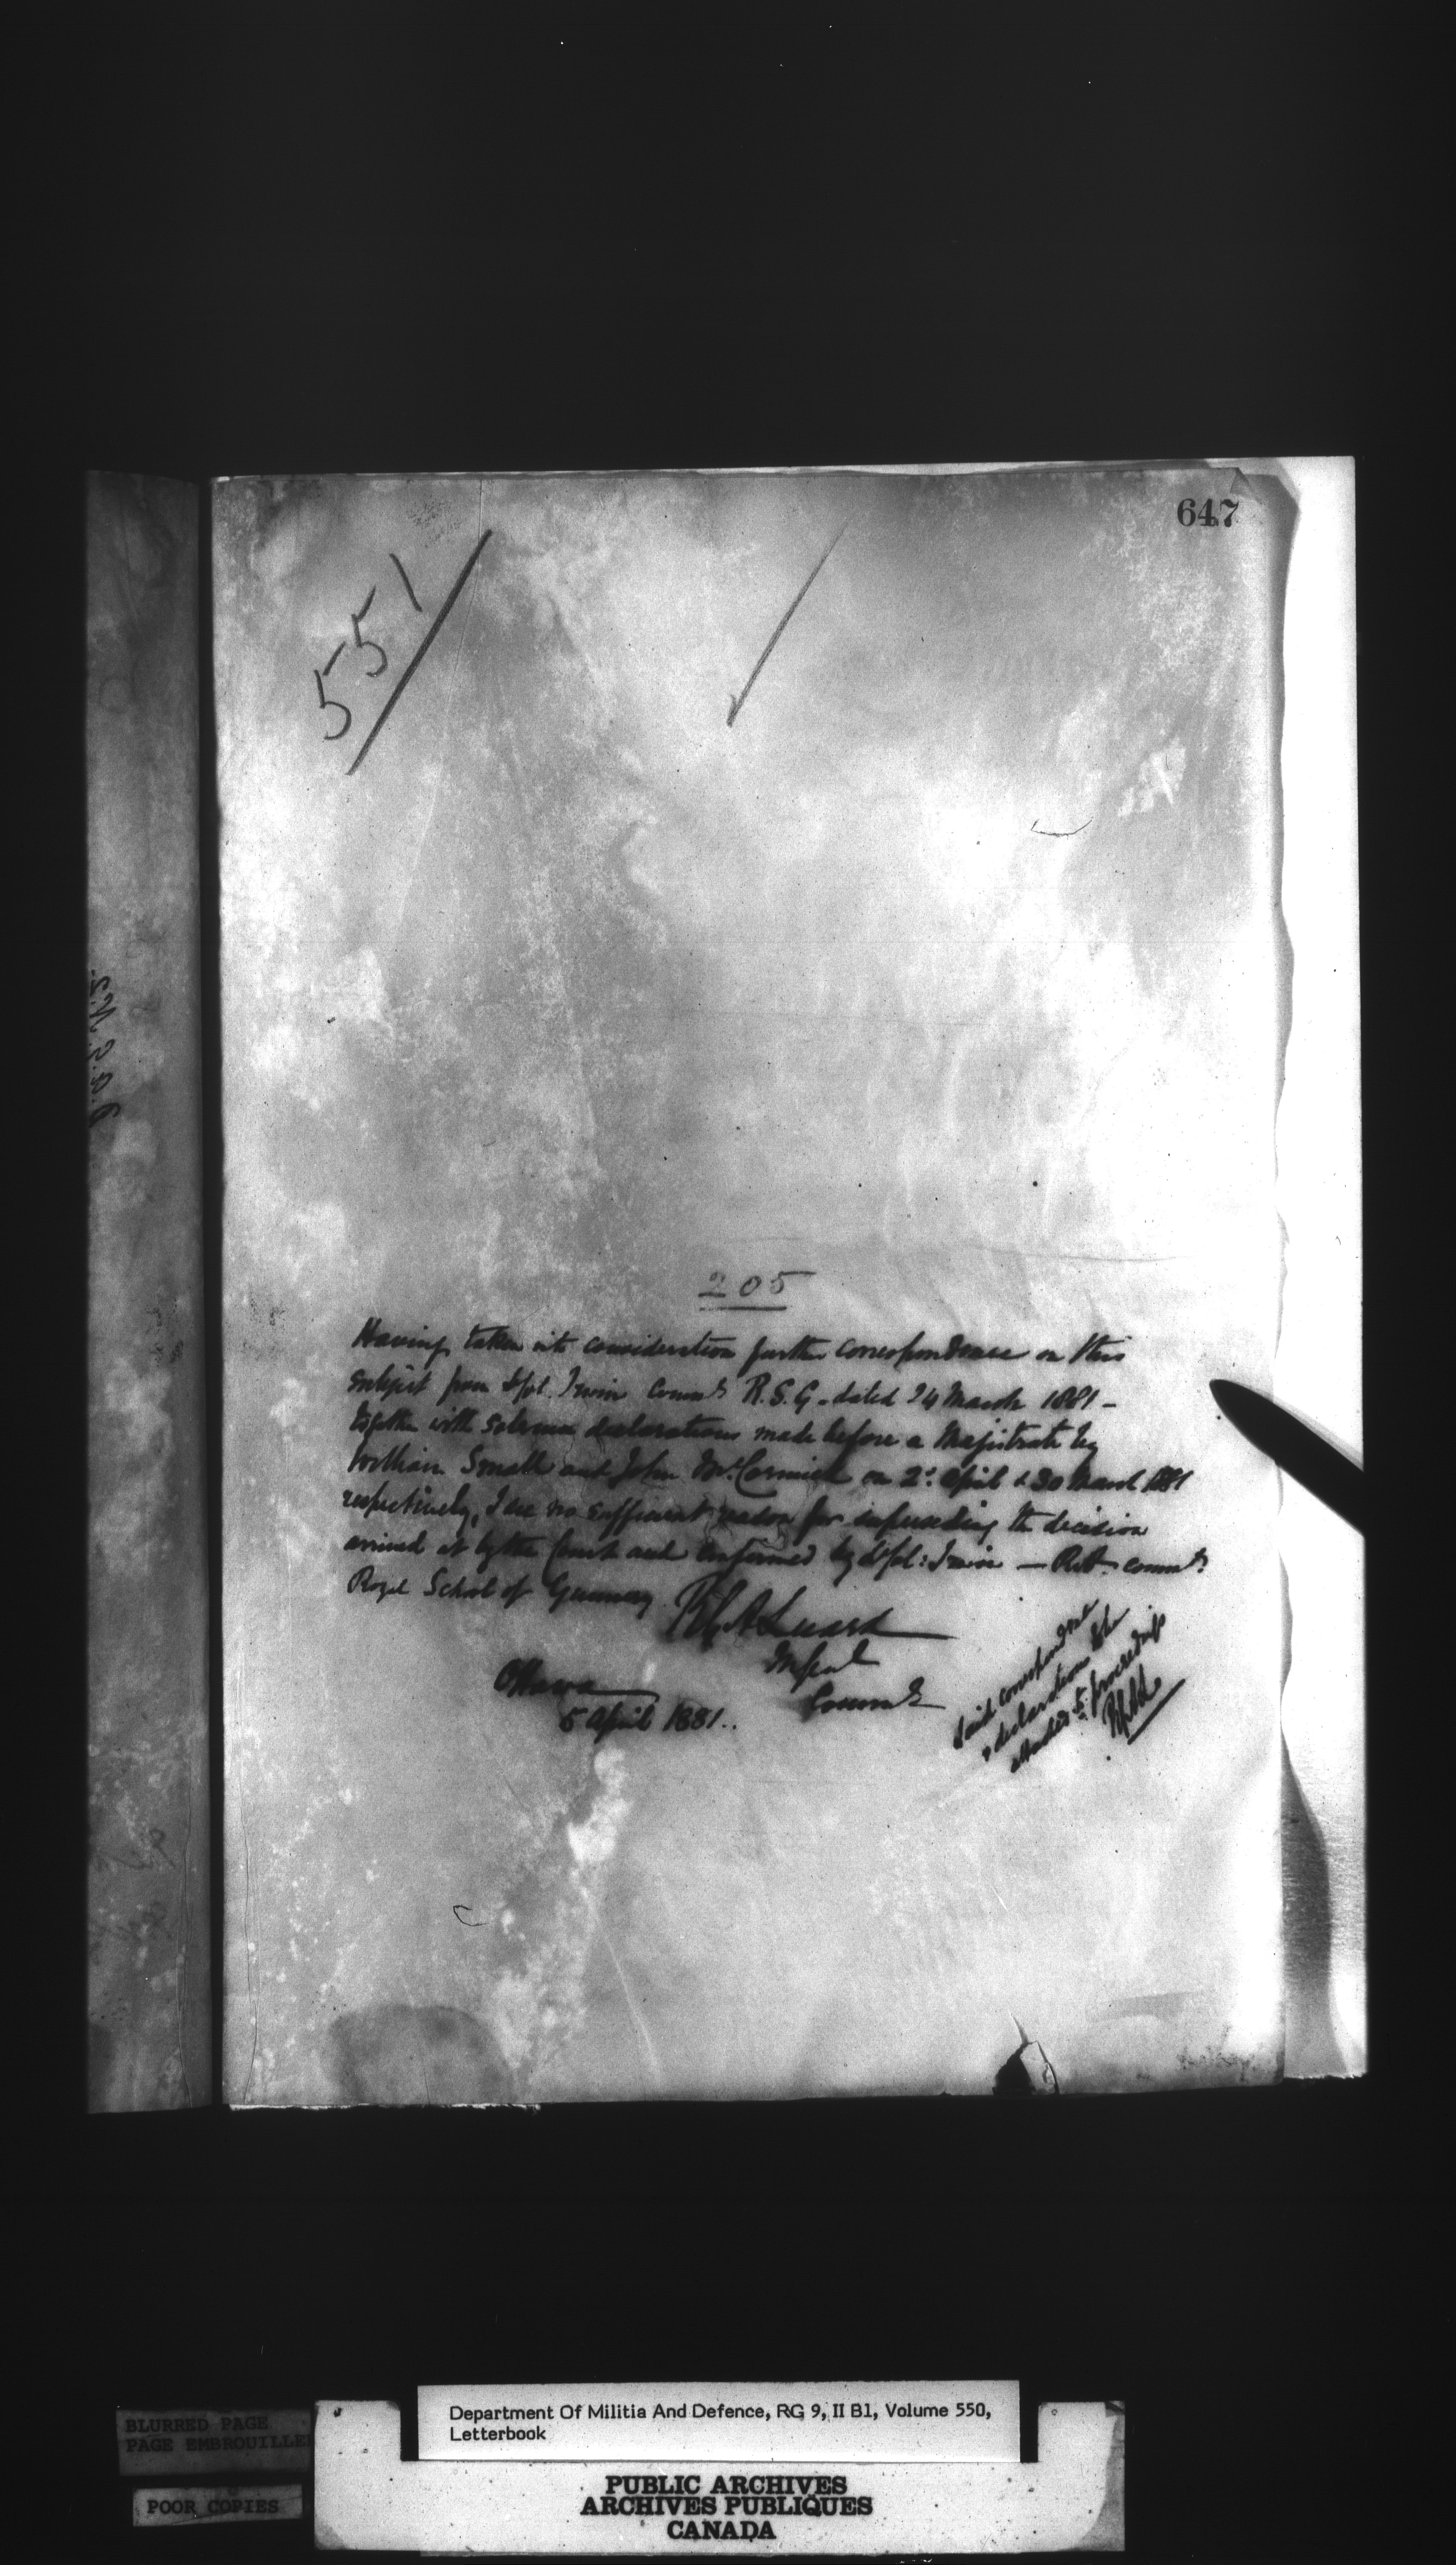 647
551
205
Having taken into consideration further correspondence on this
subject from Lt Col. Irwin Commt R.S.G. dated 24 March 1881 -
together with solemn declarations made before a Magistrate by
William Small and John McCormick on 2d. April & 30 March 1881
respectively, I see no sufficient reason for superseding the decision
arrived at by the Court and confirmed by Lt Col: Irwin — R.A. Commt
Royal School of Gunnery
R G A Luard
M Genl
Commdg
Ottawa
5 April 1881.
Said correspondence
& declarations to be
attached to proceedings
Department Of Militia And Defence, RG 9, II B1, Volume 550,
Letterbook
BLURRED PAGE
PAGE EMBROUILLE
POOR COPIES
PUBLIC ARCHIVES
ARCHIVES PUBLIQUES
CANADA